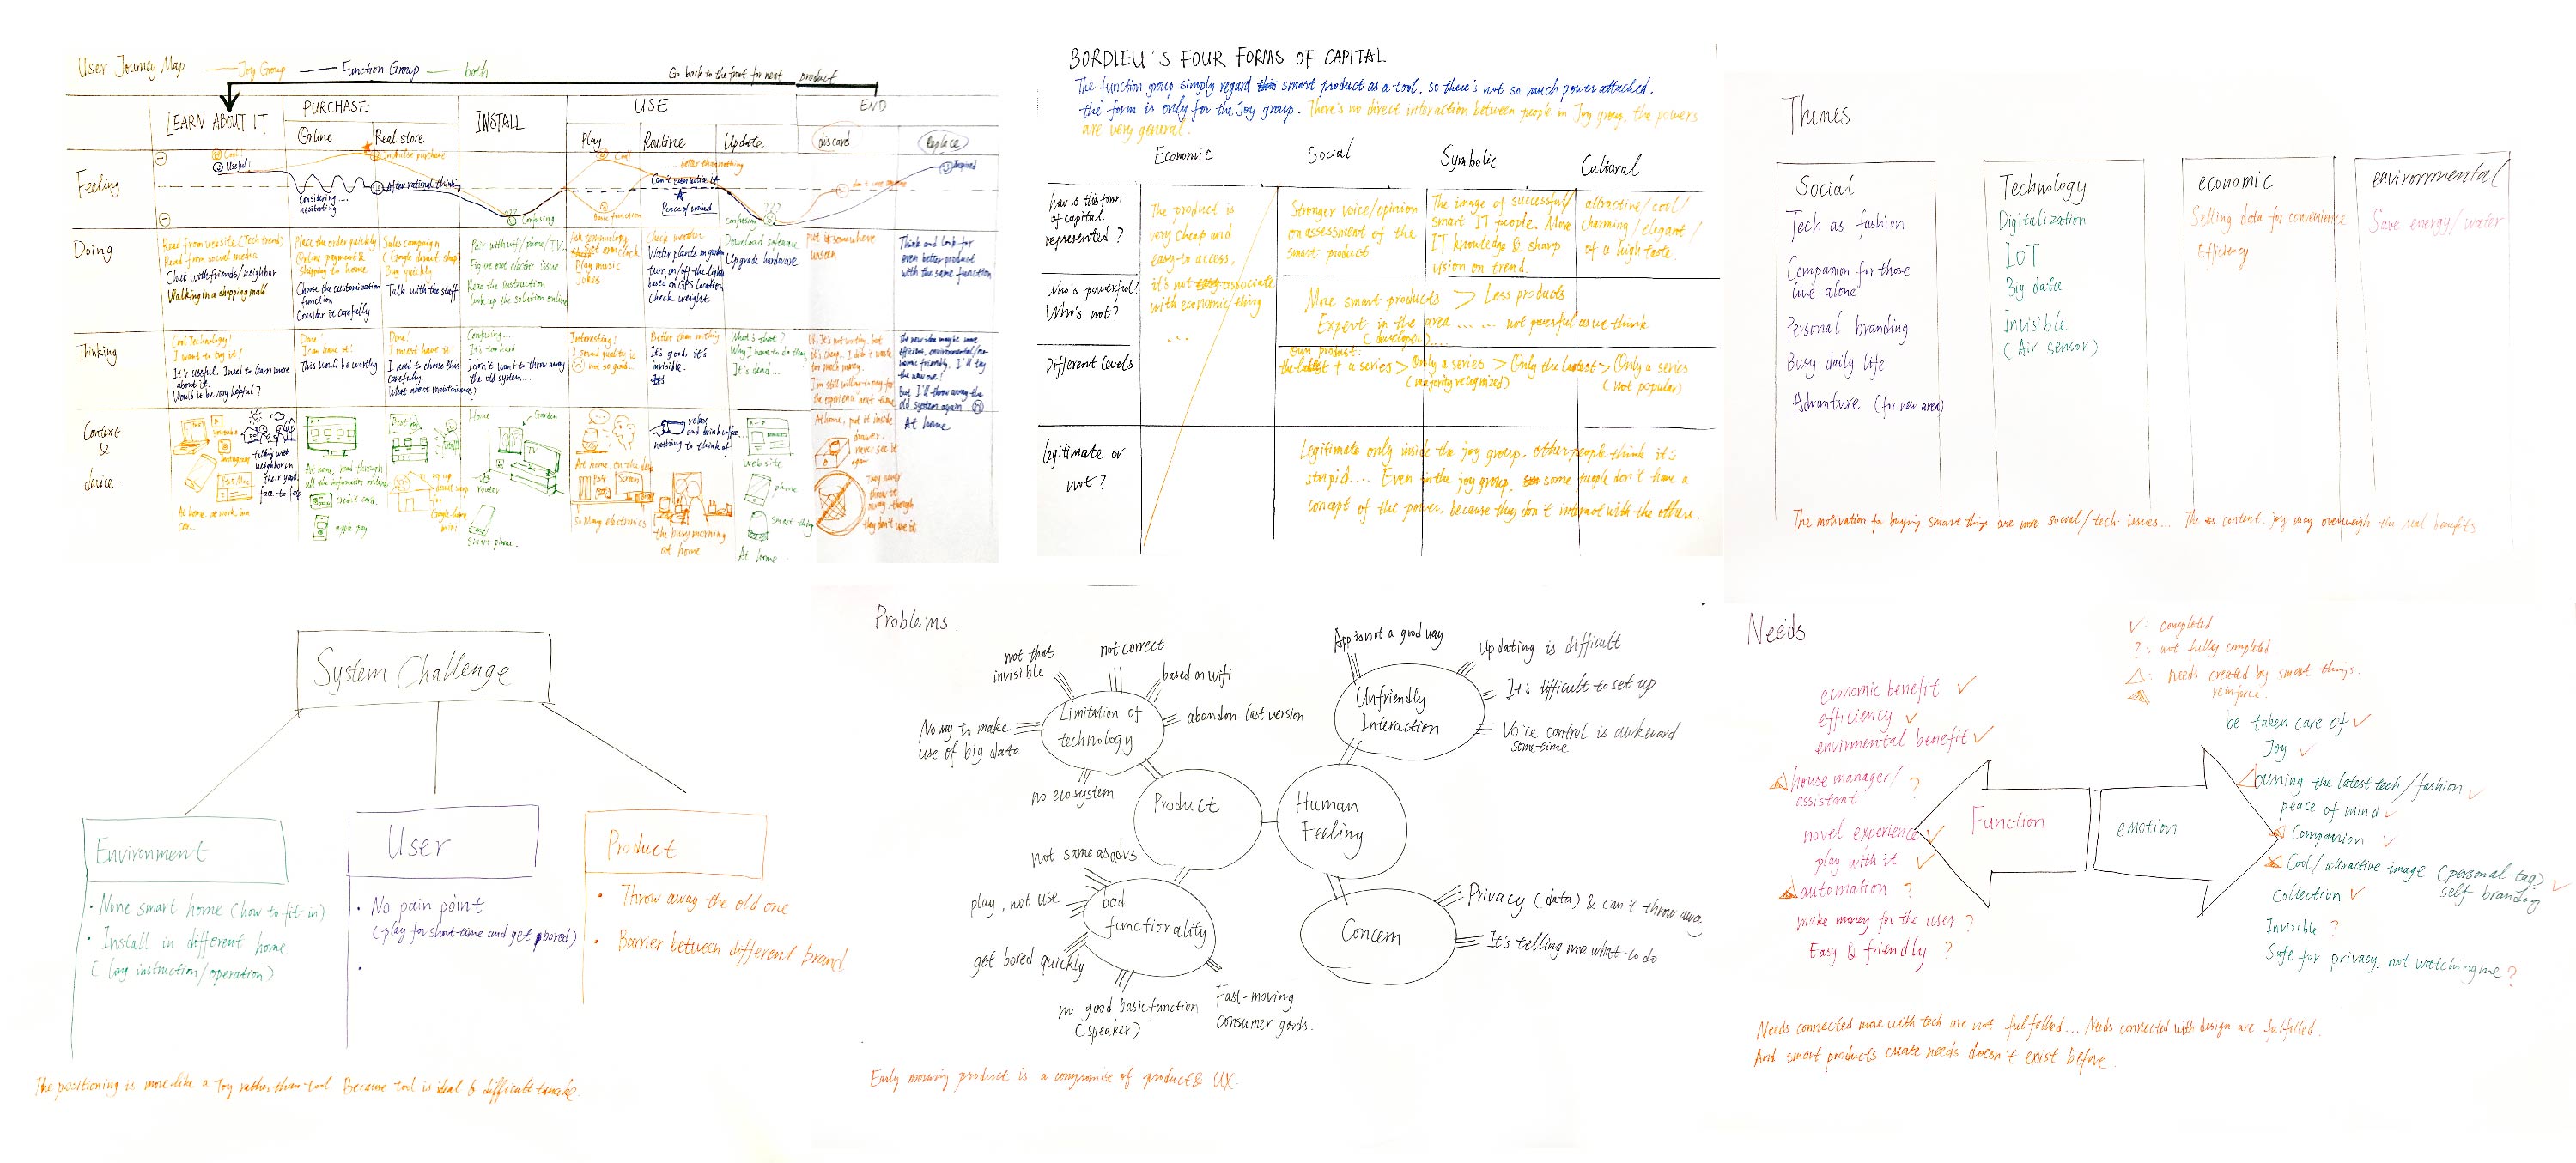 User Journey Map
Joy Group
Function Group
both
Go back to the front for next product
LEARN ABOUT IT
PURCHASE
Online
Real store
INSTALL
USE
Play
Routine
Update
END
discard
Replace
Feeling
Cool
Useful!
Considering.....
hesitating
Impulse purchase
After rational think
??? Confusing
Cool
better than nothing
Can't even notice it
Peace of mind
Confusing ???
Inspired
Doing
Read from website (Tech trend)
Read from social media
Chat with friends/neighbor
Walking in a shopping mall
Place the order quickly
Online payment &
shipping to home
Choose the customization
function
Consider it carefully
Sales campaign
(Google donut shop)
Buy quickly
Talk with the staff
Pair with wifi/phone/TV...
Figure out electric issue
Read the instruction
Look up the solution online
Play music
Jokes
Check weather
Water plants in garden
turn on/off the lights
based on GPS location
Check weight
Download software
Upgrade hardware
put it somewhere
unseen
Think and look for
even better product
with the same function
Thinking
Cool Technology!
I want to try it!
It's useful. I need to learn more
about it.
Would it be very helpful?
Done!
I can have it!
This would be worthy
Done!
I must have it!
I need to choose this
carefully.
What about maintainance?
Confusing...
It's too hard
I don't want to throw away
the old system...
Interesting!
Sound quality is
not so good...
Better than nothing
It's good, it's
invisible.
What's that?
Why I have to do that
It's dead...
I'm still willing to pay for
the experience next time
But I'll throw away the
old system again
Context
&
device
At home, read through
all the information online
credit card
apple pay
Home
Screen
TV
router
At home, on the desk
So many electronics
relax
and drink coffee...
nothing to think of
the busy morning
at home
website
phone
smart thing
At home
At home, put it inside
drawer.
never see it
again
They never
throw it
away, though
they don't use it
At home
BORDIEU'S FOUR FORMS OF CAPITAL
The function group simply regard this smart product as a tool, so there's not so much power attached.
the form is only for the Joy group. There's no direct interaction between people in Joy group, the powers
are very general.
Economic
Social
Symbolic
Cultural
how is this form
of capital
represented?
The product is
very cheap and
easy to access,
it's not easy associate
with economic/thing
...
Stronger voice/opinion
on assessment of the
smart product
The image of successful/
smart IT people. More
IT knowledge & sharp
vision on trend.
attractive/cool/
charming/elegant/
of a high taste.
Who's powerful?
Who's not?
More smart products > Less products
Expert in the area ... ... not powerful as we think
(developer)
Different levels
Own product:
the latest + a series > Only a series > Only the lastest > Only a series
(majority recognized)
(not popular)
legitimate or
not?
Legitimate only inside the joy group, other people think it's
stupid.... Even in the joy group, some people don't have a
concept of the power, because they don't interact with the others.
Themes
Social
Tech as fashion
Companion for those
live alone
Personal branding
Busy daily life
Advanture (for new area)
Technology
Digitalization
IoT
Big data
Invisible
(Air sensor)
economic
Selling data for convenience
Efficiency
environmental
Save energy/water
The motivation for buying smart things are more social/tech issues... The content. joy may overweigh the real benefits
System Challenge
Environment
• None smart home (how to fit in)
• Install in different home
( lay instruction/operation)
User
• No pain point
(play for short-time and get bored)
•
Product
• Throw away the old one
• Barrier between different brand
The positioning is more like a Toy rather than tool. Because tool is ideal & difficult to make.
Problems.
not that
invisible
not correct
based on wifi
abandon last version
No way to make
use of big data
no ecosystem
Limitation of
technology
Product
not same as advs
play, not use
get bored quickly
bad
functionality
no good basic function
(speaker)
Fast-moving
consumer goods.
App is not a good way
Updating is difficult
It's difficult to set up
Voice control is awkward
sometime
Unfriendly
Interaction
Human
Feeling
Concern
Privacy (data) & can't throw awa
It's telling me what to do
Early moving product is a compromise of product & UX.
Needs
✓: completed
?: not fully completed
△: Needs created by smart things.
reinforce.
economic benefit ✓
efficiency ✓
envirmental benefit ✓
house manager/
assistant ?
novel experience ✓
play with it ✓
automation ?
make money for the user ?
Easy & friendly ?
Function
emotion
be taken care of ✓
Joy ✓
owning the latest tech/fashion ✓
peace of mind ✓
Companion ✓
Cool/attractive image (personal tag) ✓
self branding
Collection ✓
Invisible ?
Safe for privacy, not watching me ?
Needs connected more with tech are not fulfelled... Needs connected with design are fulfilled.
And smart products create needs doesn't exist before.